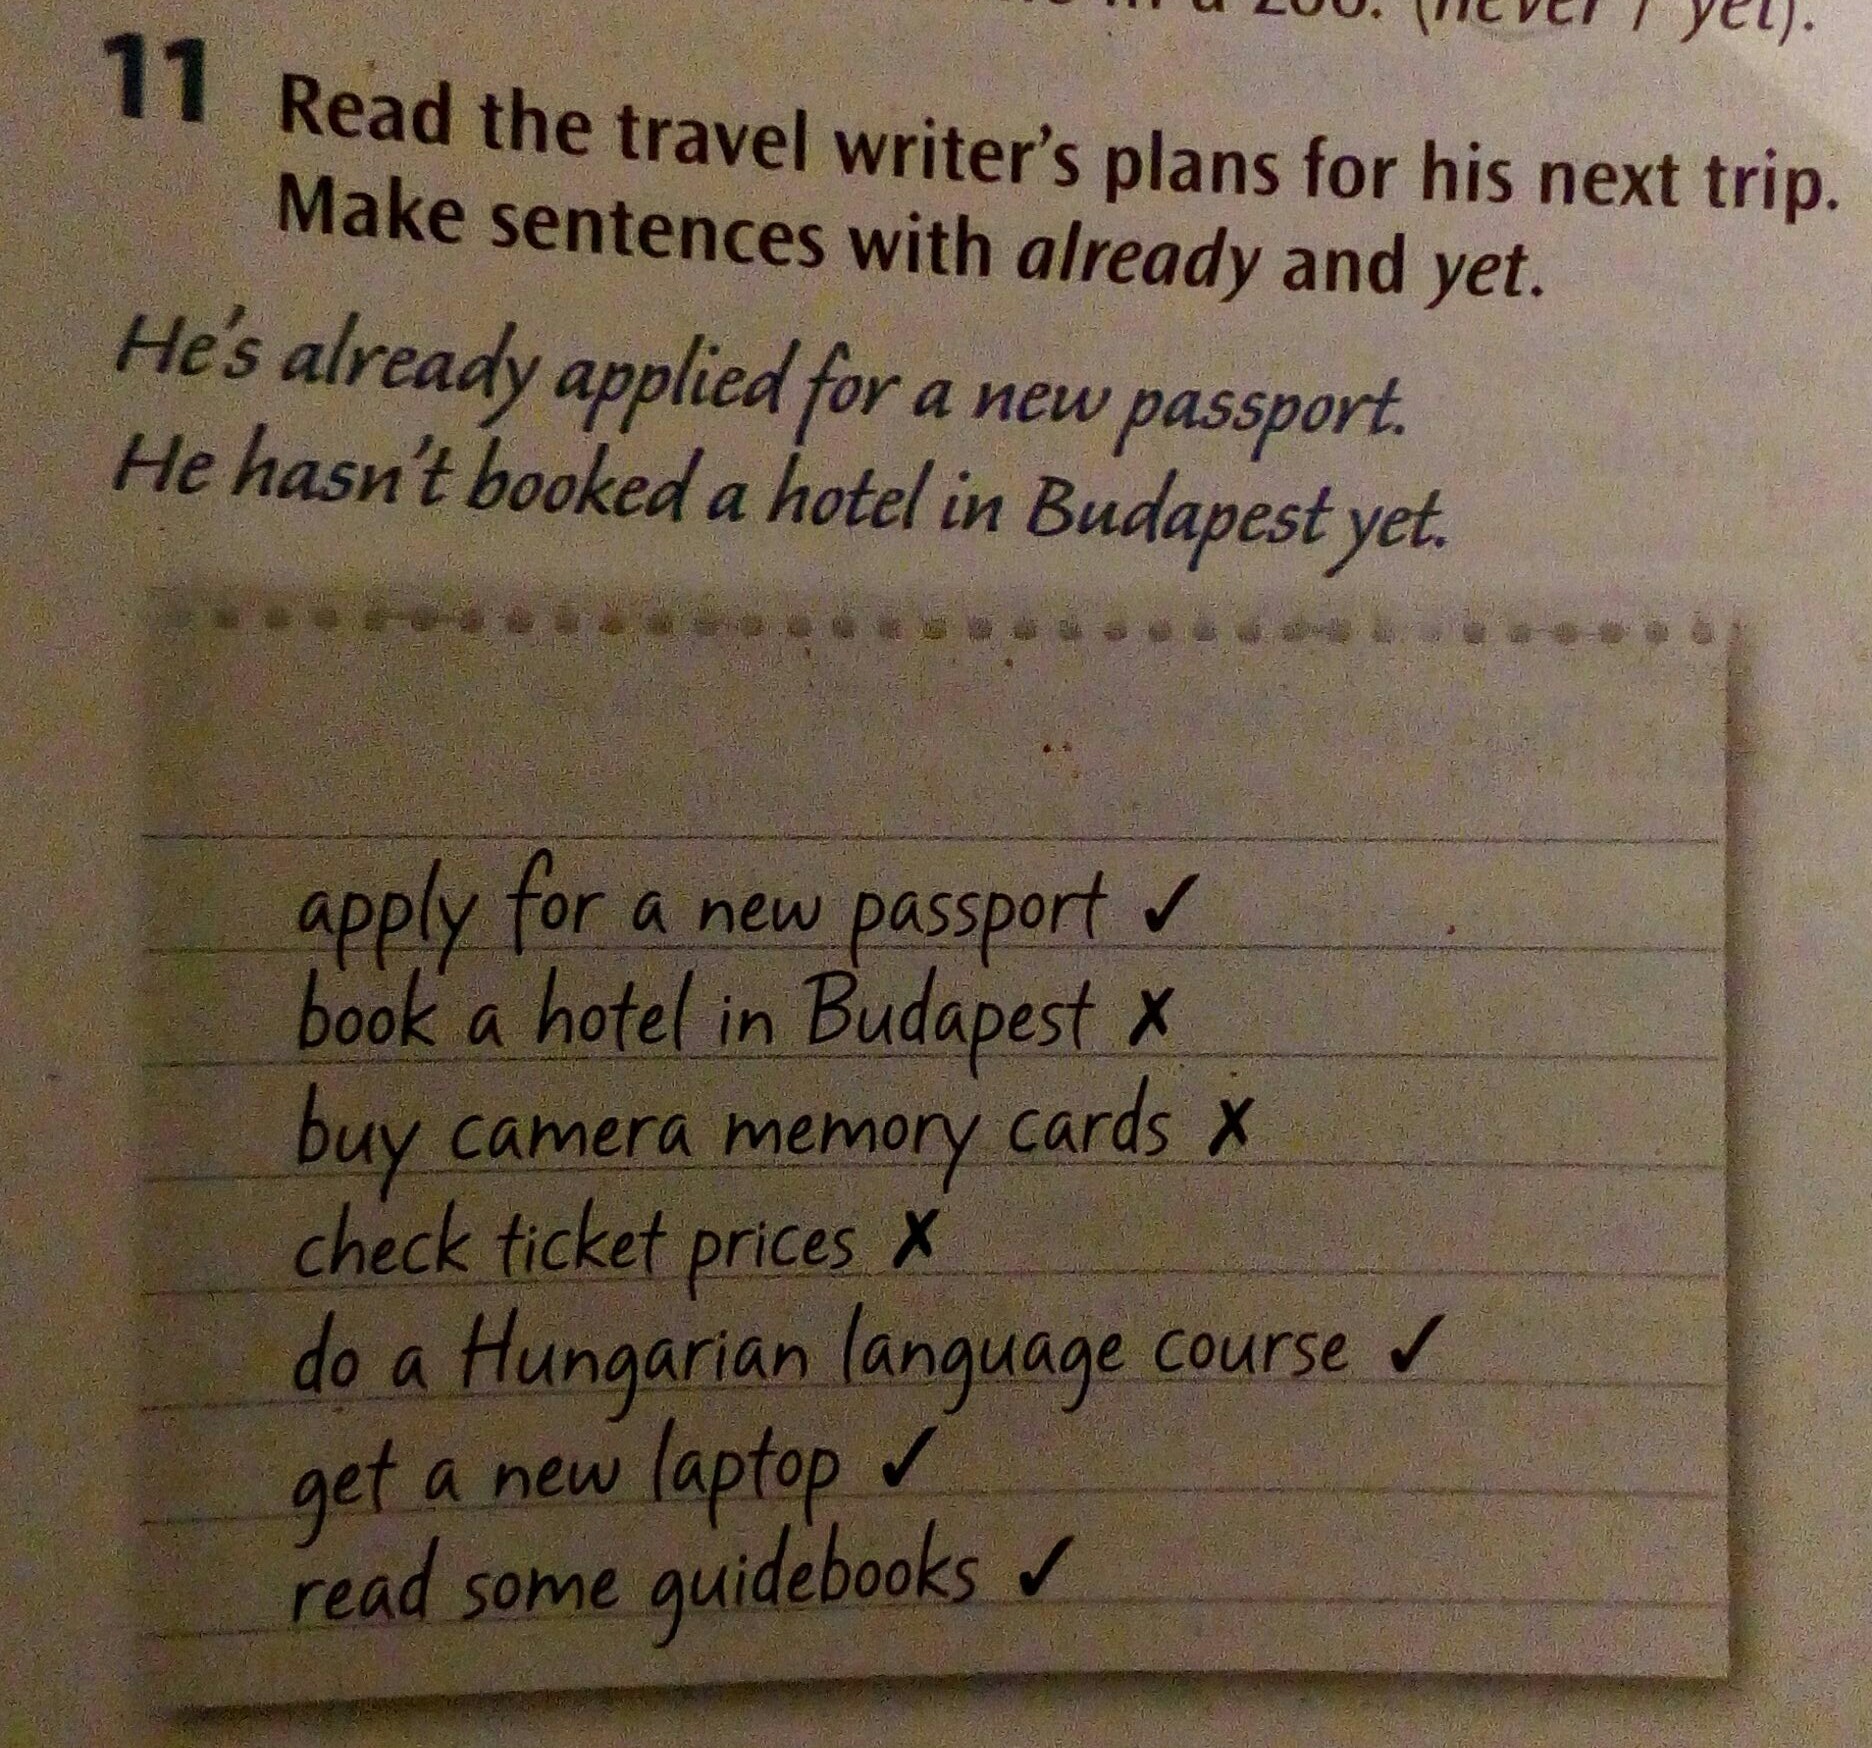 in a zoo. (never / yet).
11 Read the travel writer's plans for his next trip.
Make sentences with already and yet.
He's already applied for a new passport.
He hasn't booked a hotel in Budapest yet.
apply for a new passport ✓
book a hotel in Budapest ✗
buy camera memory cards ✗
check ticket prices ✗
do a Hungarian language course ✓
get a new laptop ✓
read some guidebooks ✓